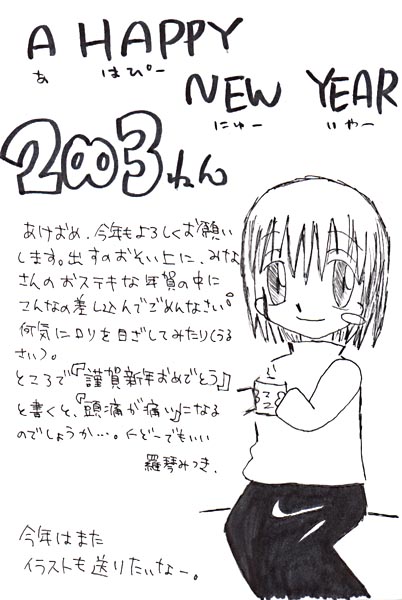 A HAPPY
あ はぴー
NEW YEAR
にゅー いやー
2003ねん
あけおめ、今年もよろしくお願い
します。出すのおそい上に、みな
さんのおステキな年賀の中に
こんなの差し込んでごめんなさい。
何気にロリを目ざしてみたり(うる
さい)。
ところで『謹賀新年おめでとう』
と書くと、『頭痛が痛い』になる
のでしょうか…。←どーでもいい
羅琴みつき.
今年はまた
イラストも送りたいなー。